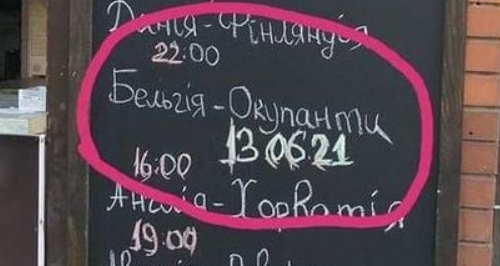 Данія-Фінляндія
22:00
Бельгія-Окупанти
13 06 21
16:00
Англія-Хорватія
19:00